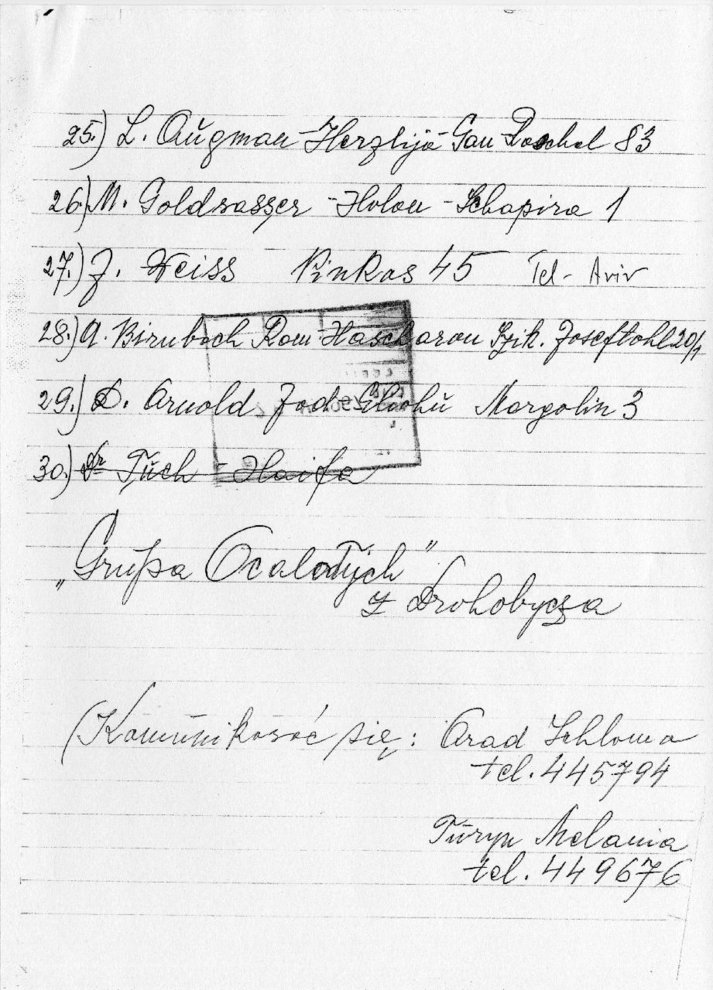 25.) L. Augman - Herzlija - Gan Raschel 83
26.) M. Goldwasser - Holon - Schapira 1
27.) J. Weiss Pinkas 45 Tel-Aviv
28.) A. Birnbach Ram-Hascharon Szik. Joseftohl 20/1
29.) D. Arnold Jad Eliahu Margolin 3
30.) Dr Tuch - Haifa
„Grupa Ocalałych"
z Drohobycza
(Komunikować się: Arad Schlomo
tel. 445794
Turyn Melania
tel. 449676